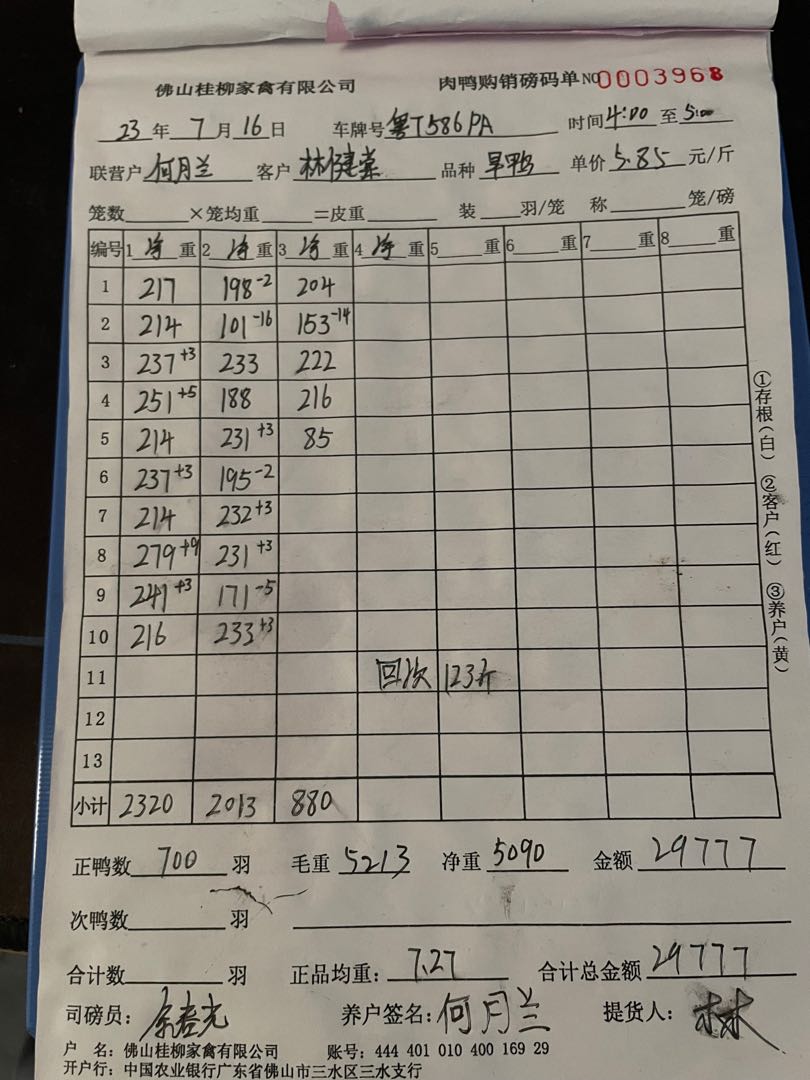 佛山桂柳家禽有限公司 肉鸭购销磅码单 NO 0003968
23 年 7 月 16 日 车牌号 粤T586PA 时间 4:00 至 5:00
联营户 何月兰 客户 林健棠 品种 旱鸭 单价 5.85 元/斤
笼数 ×笼均重 =皮重 装 羽/笼 称 笼/磅
编号 1 净 重 2 净 重 3 净 重 4 净 重 5 重 6 重 7 重 8 重
1 217 198-2 204
2 214 101-16 153-14
3 237+3 233 222
4 251+5 188 216
5 214 231+3 85
6 237+3 195-2
7 214 232+3
8 279+9 231+3
9 241+3 171-5
10 216 233+3
11 回次 123斤
12
13
小计 2320 2013 880
①存根(白) ②客户(红) ③养户(黄)
正鸭数 700 羽 毛重 5213 净重 5090 金额 29777
次鸭数 羽
合计数 羽 正品均重: 7.27 合计总金额 29777
司磅员: 养户签名: 何月兰 提货人: 林
户 名: 佛山桂柳家禽有限公司 账号: 444 401 010 400 169 29
开户行: 中国农业银行广东省佛山市三水区三水支行